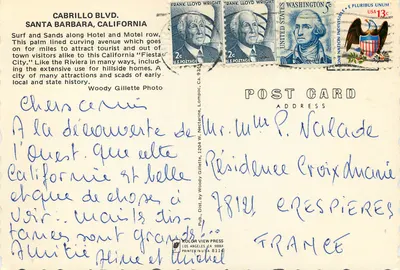 CABRILLO BLVD.
SANTA BARBARA, CALIFORNIA
Surf and Sands along Hotel and Motel row,
This palm lined curving avenue which goes
on for miles to attract tourist and out of
town visitors alike to this California "Fiesta
City." Like the Riviera in many ways, includ-
ing the extensive use for hillside homes. A
city of many attractions and scads of early
local and state history.
Woody Gillette Photo
FRANK LLOYD WRIGHT
2c U.S. POSTAGE
FRANK LLOYD WRIGHT
2c U.S. POSTAGE
WASHINGTON
UNITED STATES
E PLURIBUS UNUM
USA
13c
POST CARD
ADDRESS
Chers amis
A la découverte de
l'Ouest. Que cette
Californie est belle
et que de choses à
voir.. mais les dis-
tances sont grandes...
Amitié Aline et Michel
Mr. Mme P. Valade
Résidence Croix Marie
78121 CRESPIERES
FRANCE
Pub. Dist. by Woody Gillette, 1204 W. Nectarine, Lompoc, Ca.
KOLOR VIEW PRESS
LOS ANGELES, CA.
PRINTED IN U.S.A.